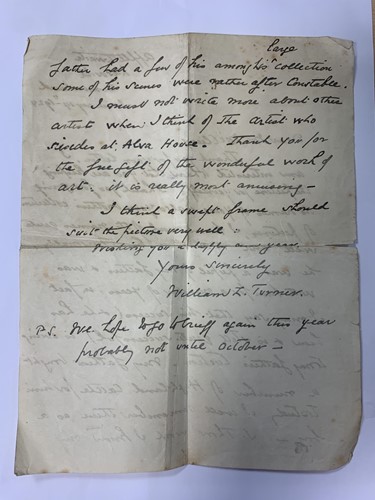 large
father had a few of his among his ^ collection
some of his scenes were rather after Constable.
I must not write more about other
artists when I think of the artist who
resides at Alva House. Thank you for
the free gift of the wonderful work of
art. it is really most amusing —
I think a swept frame should
suit the picture very well.
Wishing you a happy new year
Yours sincerely
William L. Turner.
P.S. We hope to go to Crieff again this year
probably not until October —